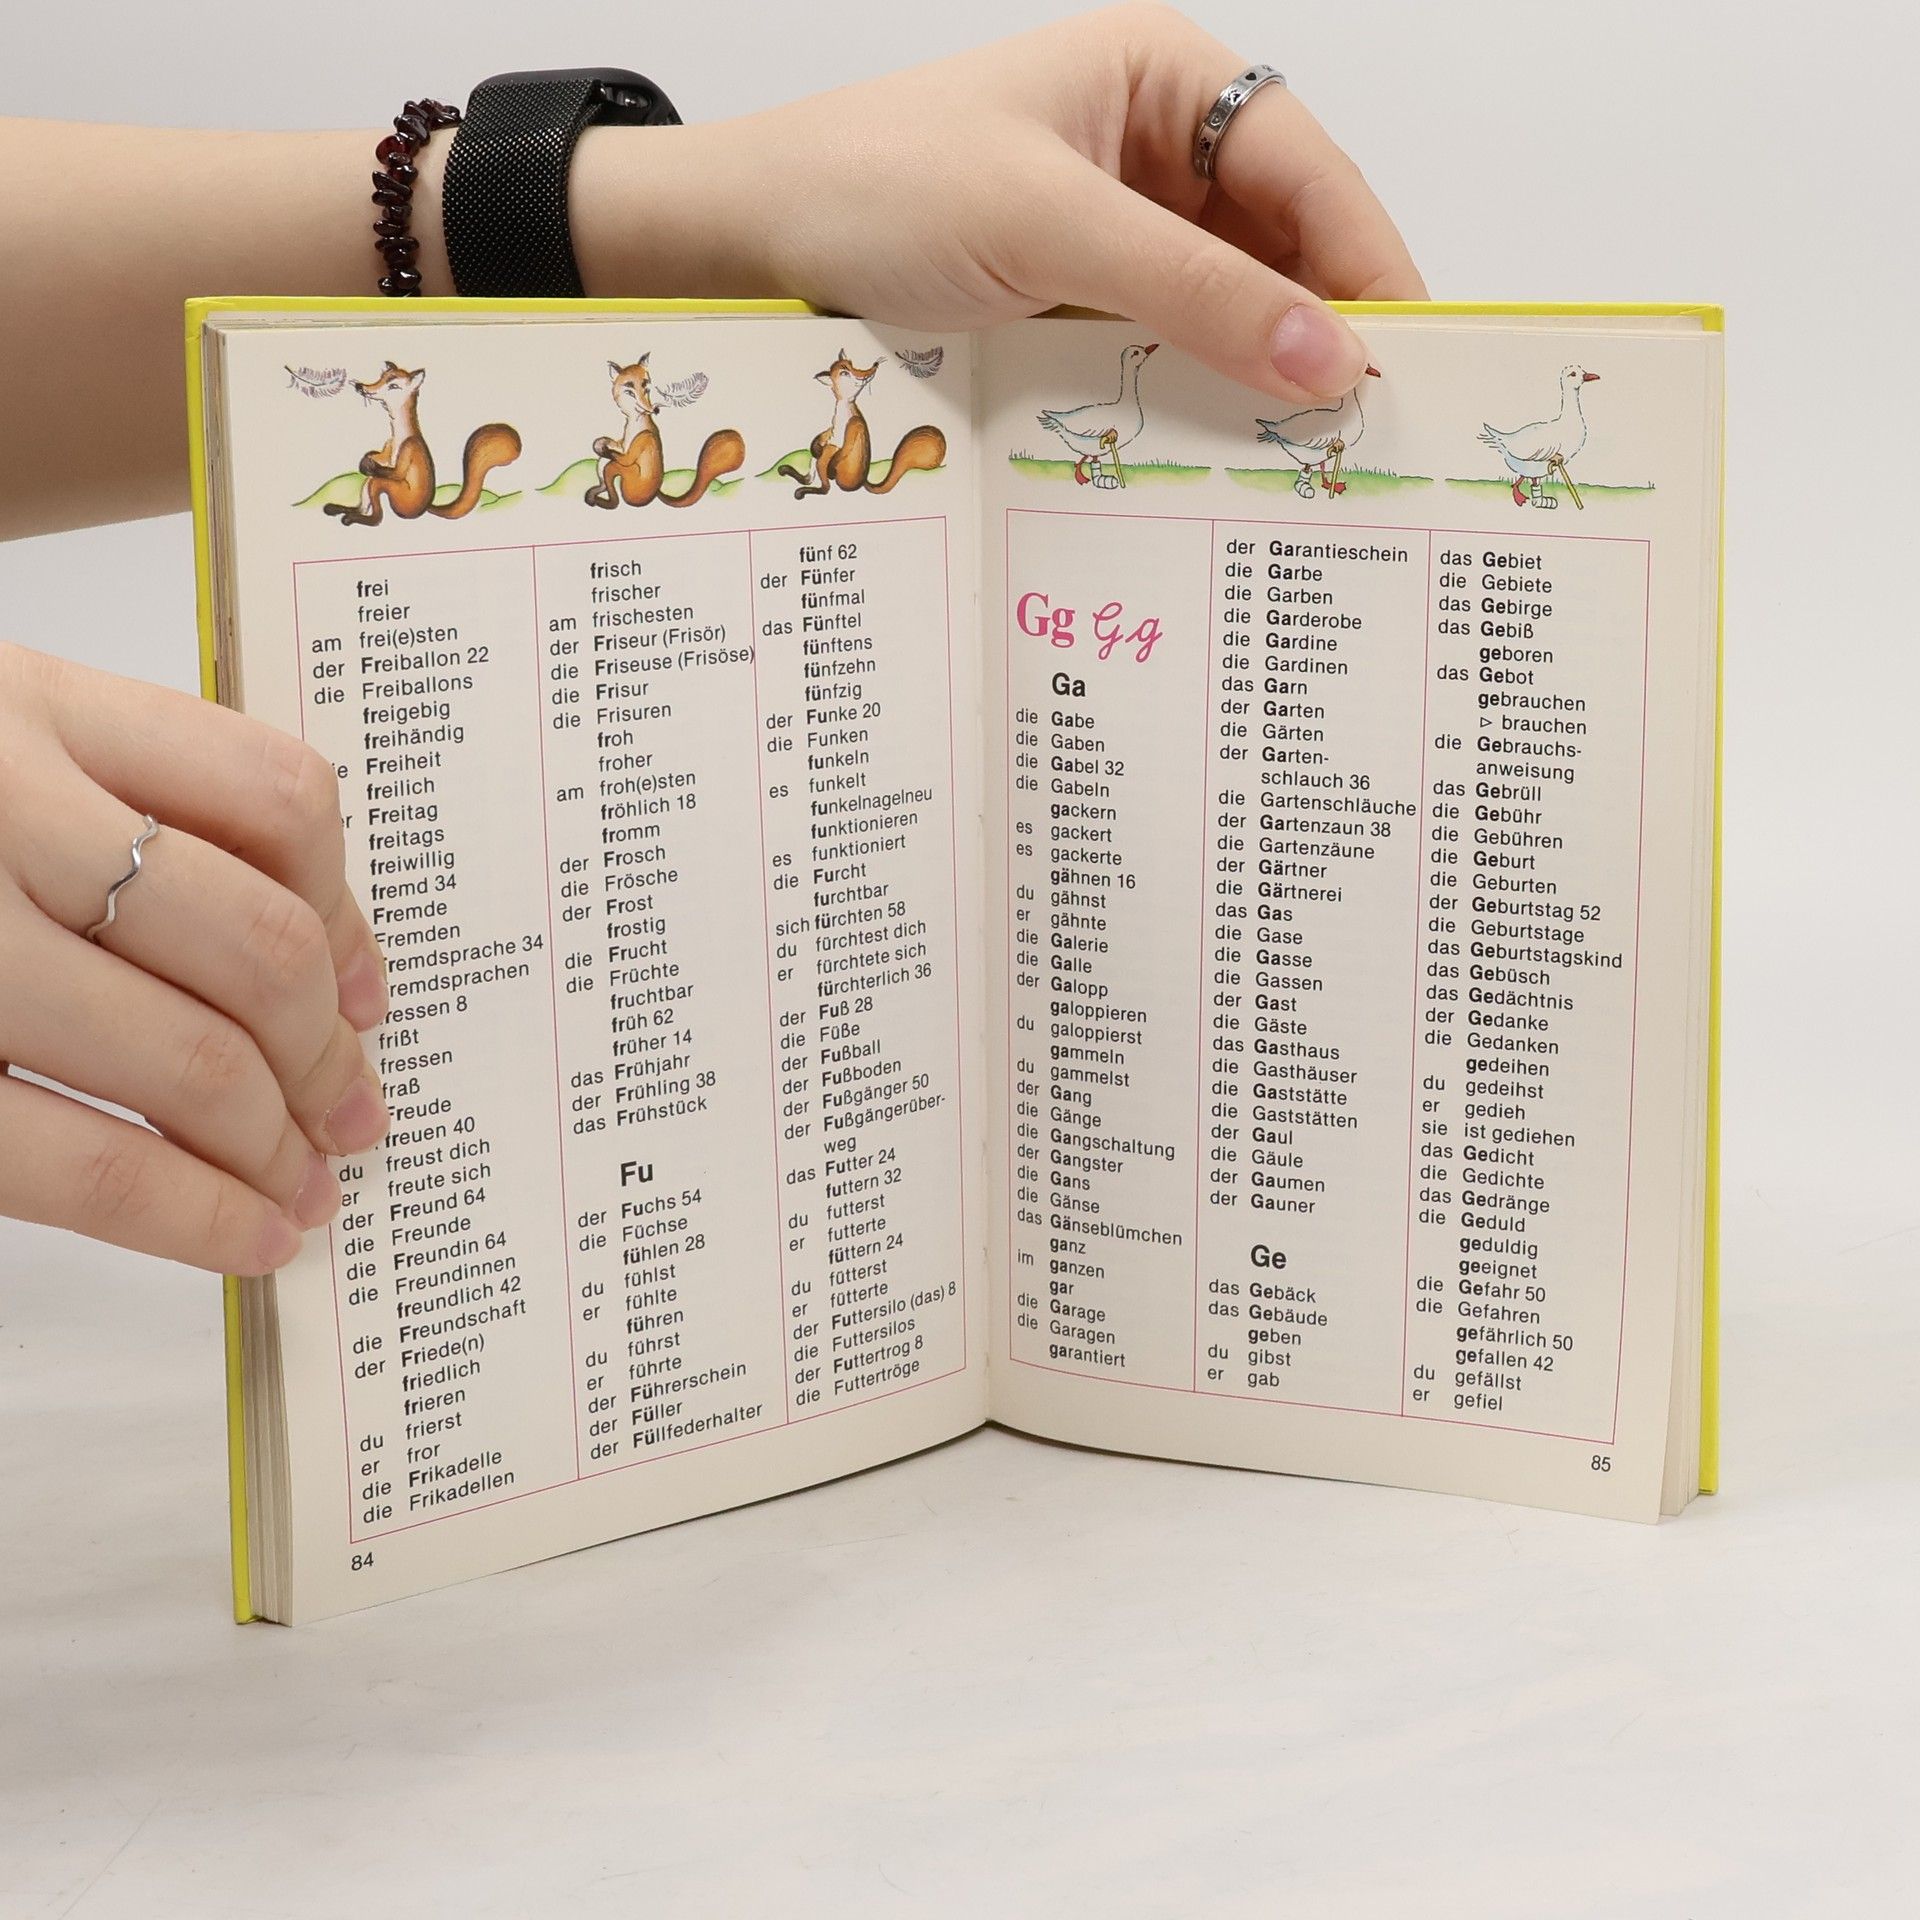 frei
freier
am frei(e)sten
der Freiballon 22
die Freiballons
freigebig
freihändig
Freiheit
freilich
Freitag
freitags
freiwillig
fremd 34
Fremde
Fremden
Fremdsprache 34
Fremdsprachen
fressen 8
frißt
fressen
fraß
Freude
freuen 40
du freust dich
er freute sich
der Freund 64
die Freunde
die Freundin 64
die Freundinnen
freundlich 42
die Freundschaft
der Friede(n)
friedlich
frieren
du frierst
er fror
die Frikadelle
die Frikadellen
frisch
frischer
am frischesten
der Friseur (Frisör)
die Friseuse (Frisöse)
die Frisur
die Frisuren
froh
froher
am froh(e)sten
fröhlich 18
fromm
der Frosch
die Frösche
der Frost
frostig
die Frucht
die Früchte
fruchtbar
früh 62
früher 14
das Frühjahr
der Frühling 38
das Frühstück
Fu
der Fuchs 54
die Füchse
fühlen 28
du fühlst
er fühlte
führen
du führst
er führte
der Führerschein
der Füller
der Füllfederhalter
fünf 62
der Fünfer
fünfmal
das Fünftel
fünftens
fünfzehn
fünfzig
der Funke 20
die Funken
funkeln
es funkelt
funkelnagelneu
funktionieren
es funktioniert
die Furcht
furchtbar
sich fürchten 58
du fürchtest dich
er fürchtete sich
fürchterlich 36
der Fuß 28
die Füße
der Fußball
der Fußboden
der Fußgänger 50
der Fußgängerüber-
weg
das Futter 24
futtern 32
du futterst
er futterte
füttern 24
du fütterst
er fütterte
der Futtersilo (das) 8
die Futtersilos
der Futtertrog 8
die Futtertröge
84
Gg Gg
Ga
die Gabe
die Gaben
die Gabel 32
die Gabeln
gackern
es gackert
es gackerte
gähnen 16
du gähnst
er gähnte
die Galerie
die Galle
der Galopp
galoppieren
du galoppierst
gammeln
du gammelst
der Gang
die Gänge
die Gangschaltung
der Gangster
die Gans
die Gänse
das Gänseblümchen
ganz
im ganzen
gar
die Garage
die Garagen
garantiert
der Garantieschein
die Garbe
die Garben
die Garderobe
die Gardine
die Gardinen
das Garn
der Garten
die Gärten
der Garten-
schlauch 36
die Gartenschläuche
der Gartenzaun 38
die Gartenzäune
der Gärtner
die Gärtnerei
das Gas
die Gase
die Gasse
die Gassen
der Gast
die Gäste
das Gasthaus
die Gasthäuser
die Gaststätte
die Gaststätten
der Gaul
die Gäule
der Gaumen
der Gauner
Ge
das Gebäck
das Gebäude
geben
du gibst
er gab
das Gebiet
die Gebiete
das Gebirge
das Gebiß
geboren
das Gebot
gebrauchen
▷ brauchen
die Gebrauchs-
anweisung
das Gebrüll
die Gebühr
die Gebühren
die Geburt
die Geburten
der Geburtstag 52
die Geburtstage
das Geburtstagskind
das Gebüsch
das Gedächtnis
der Gedanke
die Gedanken
gedeihen
du gedeihst
er gedieh
sie ist gediehen
das Gedicht
die Gedichte
das Gedränge
die Geduld
geduldig
geeignet
die Gefahr 50
die Gefahren
gefährlich 50
gefallen 42
du gefällst
er gefiel
85